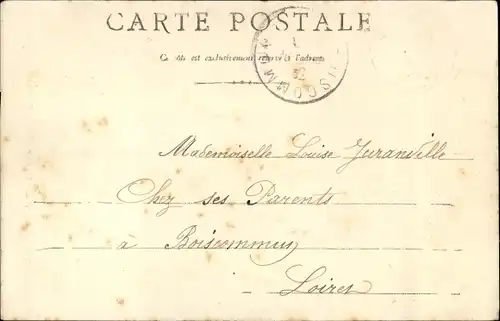 CARTE POSTALE
Ce côté est exclusivement réservé à l'adresse
Mademoiselle Louise Juranville
Chez ses Parents
à Boiscommun
Loiret